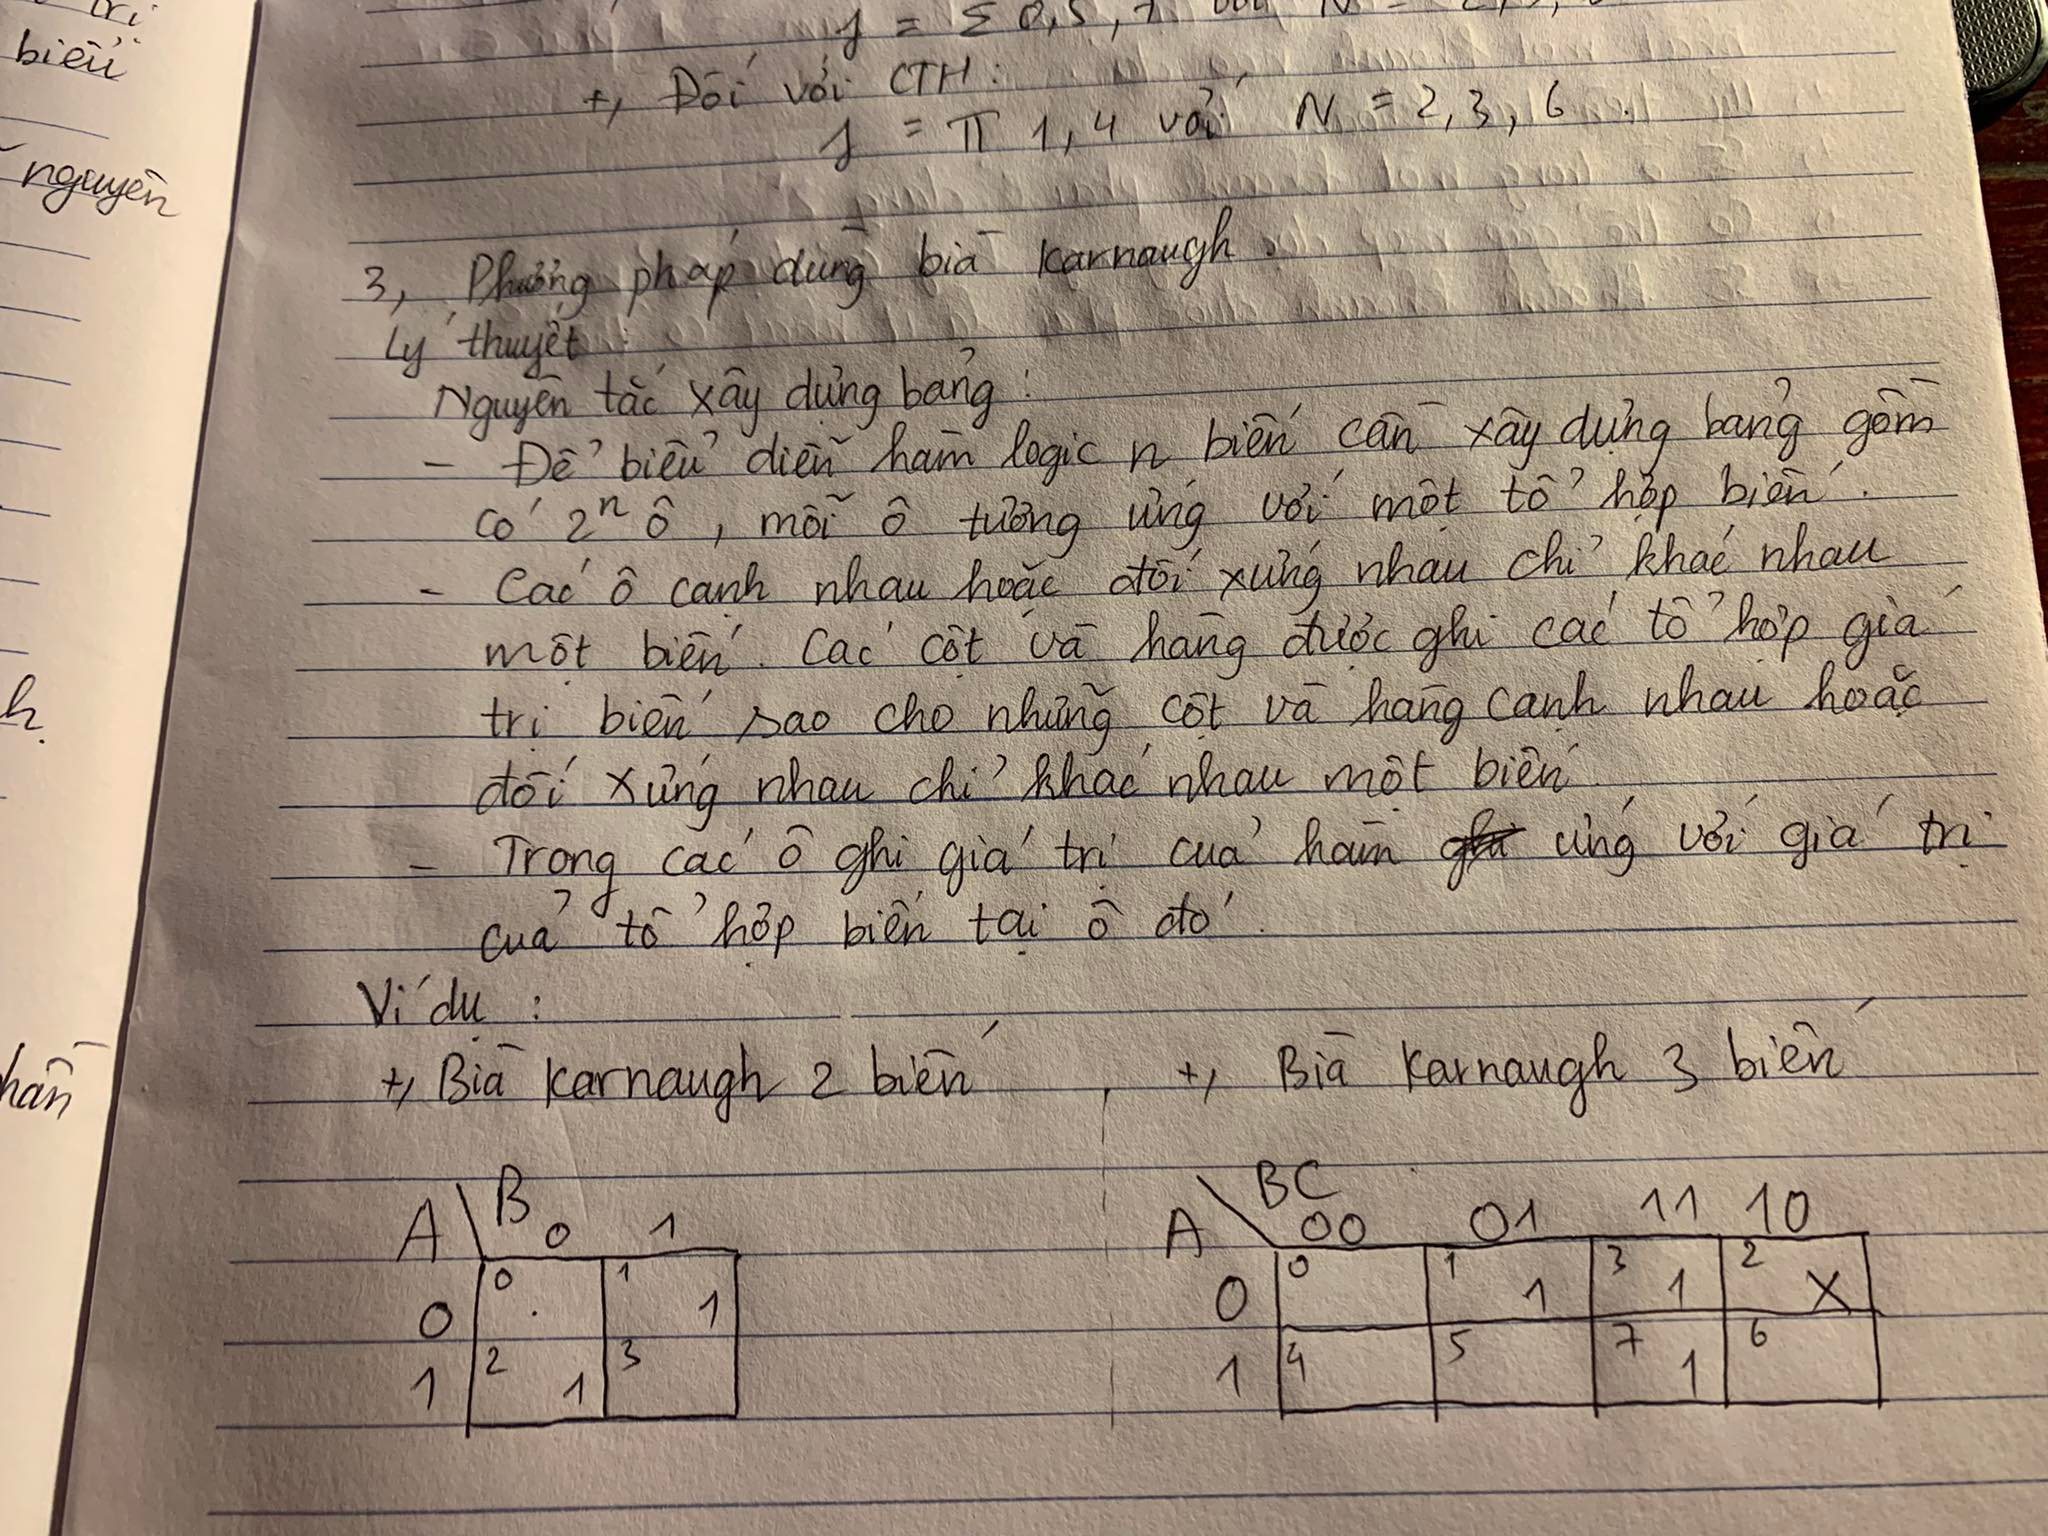 trị
biểu
nguyên
h.
hần
f = Σ 0,5,7 với N =
+, Đối với CTH:
f = π 1,4 với N = 2,3,6.
3, Phương pháp dùng bìa Karnaugh.
Lý thuyết:
Nguyên tắc xây dựng bảng:
- Để biểu diễn hàm logic n biến cần xây dựng bảng gồm
có 2ⁿ ô, mỗi ô tương ứng với một tổ hợp biến.
- Các ô cạnh nhau hoặc đối xứng nhau chỉ khác nhau
một biến. Các cột và hàng được ghi các tổ hợp giá
trị biến sao cho những cột và hàng cạnh nhau hoặc
đối xứng nhau chỉ khác nhau một biến.
- Trong các ô ghi giá trị của hàm ứng với giá trị
của tổ hợp biến tại ô đó.
Ví dụ:
+, Bìa Karnaugh 2 biến
A \ B 0 1
0 0 1 1
1 2 1 3
+, Bìa Karnaugh 3 biến
A \ BC 00 01 11 10
0 0 1 1 3 1 2 X
1 4 5 7 1 6